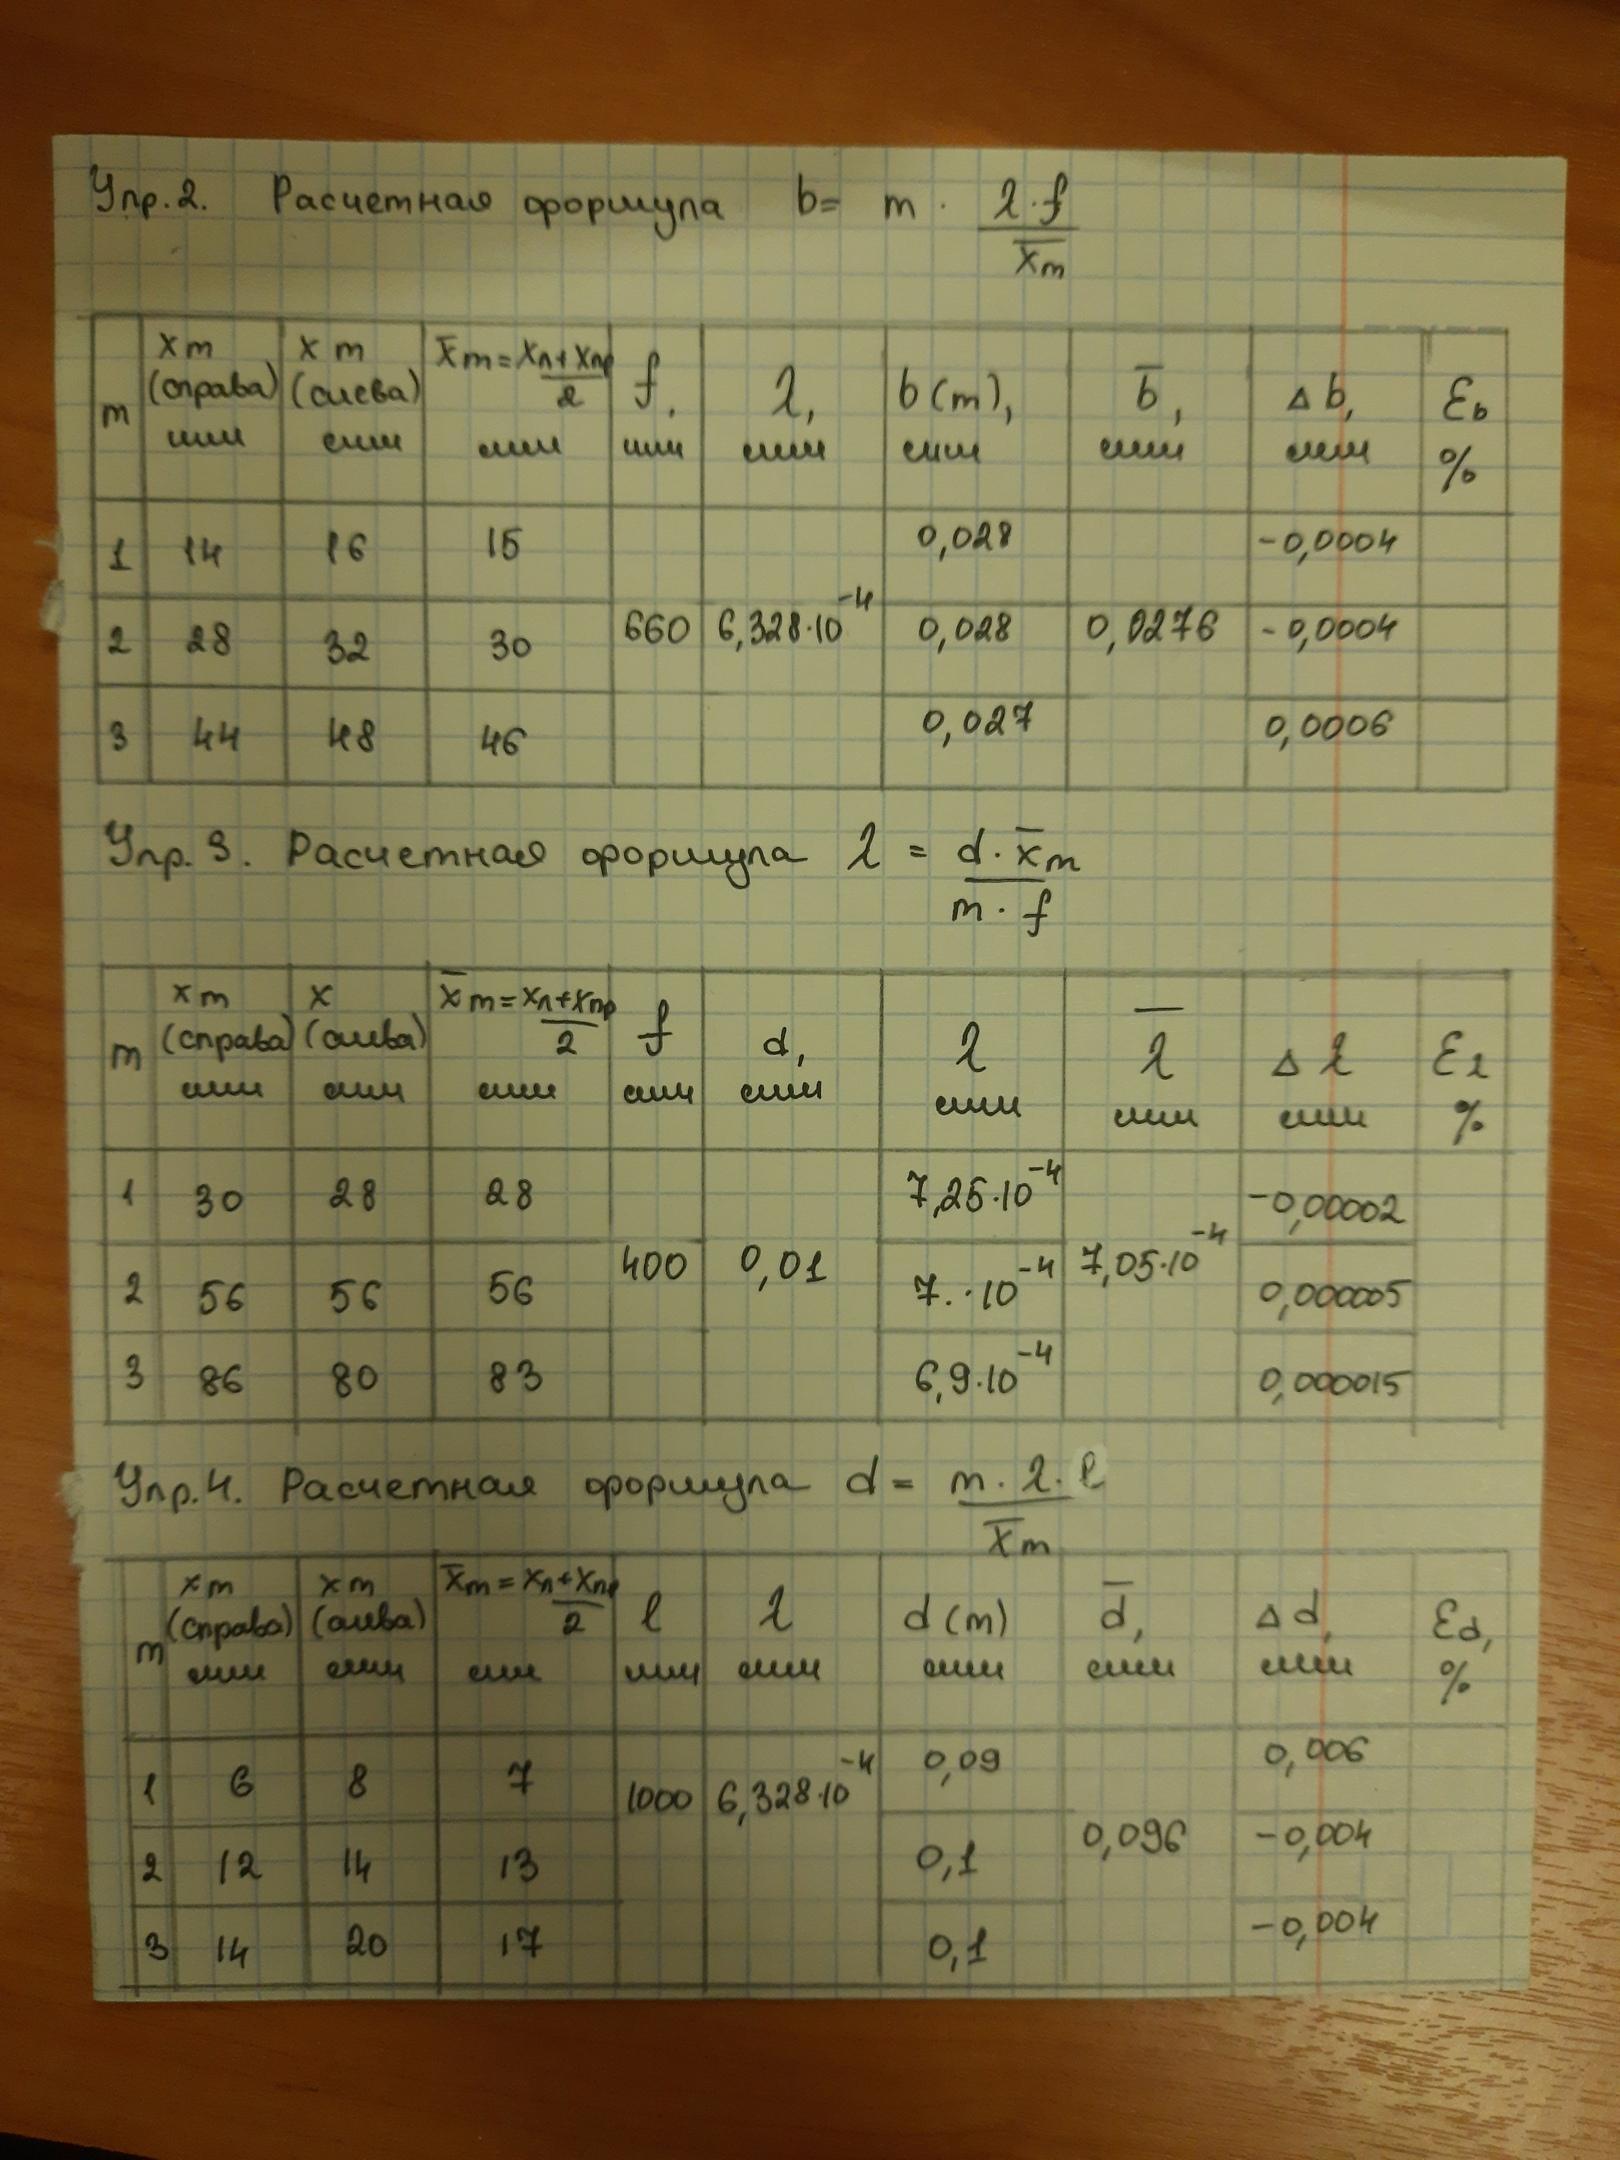 Упр.2. Расчетная формула b= m · λ·f / x̄m
m | xm (справа) мм | xm (слева) мм | x̄m = xл+xпр / 2 мм | f, мм | λ, мм | b(m), мм | b̄, мм | Δb, мм | Ɛb %
1 | 14 | 16 | 15 | | | 0,028 | | -0,0004 |
2 | 28 | 32 | 30 | 660 | 6,328·10⁻⁴ | 0,028 | 0,0276 | -0,0004 |
3 | 44 | 48 | 46 | | | 0,027 | | 0,0006 |
Упр. 3. Расчетная формула λ = d·x̄m / m·f
m | xm (справа) мм | x (слева) мм | x̄m = xл+xпр / 2 мм | f мм | d, мм | λ мм | λ̄ мм | Δλ мм | Ɛλ %
1 | 30 | 28 | 28 | | | 7,25·10⁻⁴ | | -0,00002 |
2 | 56 | 56 | 56 | 400 | 0,01 | 7.·10⁻⁴ | 7,05·10⁻⁴ | 0,000005 |
3 | 86 | 80 | 83 | | | 6,9·10⁻⁴ | | 0,000015 |
Упр.4. Расчетная формула d = m·λ·l / x̄m
m | xm (справа) мм | xm (слева) мм | x̄m = xл+xпр / 2 мм | l мм | λ мм | d(m) мм | d̄, мм | Δd, мм | Ɛd, %
1 | 6 | 8 | 7 | 1000 | 6,328·10⁻⁴ | 0,09 | | 0,006 |
2 | 12 | 14 | 13 | | | 0,1 | 0,096 | -0,004 |
3 | 14 | 20 | 17 | | | 0,1 | | -0,004 |